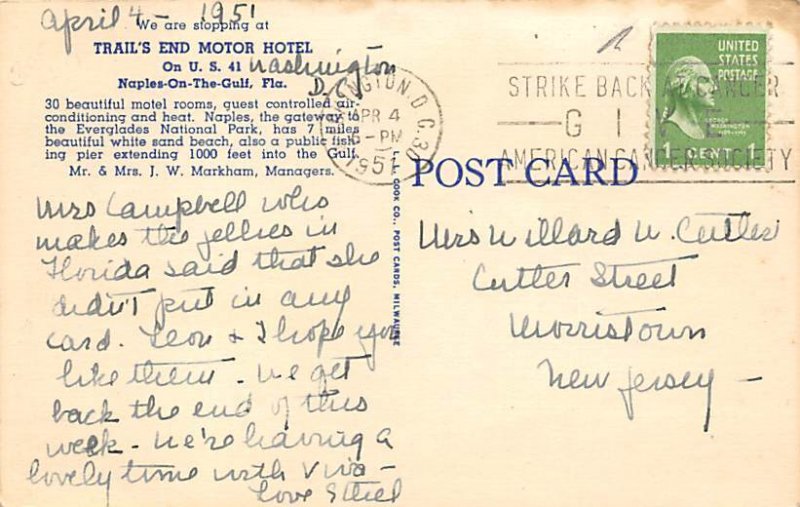 april 4 - 1951
We are stopping at
TRAIL'S END MOTOR HOTEL
On U. S. 41
Naples-On-The-Gulf, Fla.
Washington
D. C.
30 beautiful motel rooms, guest controlled air-
conditioning and heat. Naples, the gateway to
the Everglades National Park, has 7 miles
beautiful white sand beach, also a public fish-
ing pier extending 1000 feet into the Gulf.
Mr. & Mrs. J. W. Markham, Managers.
Mrs Campbell who
makes the jellies in
Florida said that she
didn't put in any
card. Leon & I hope you
like them - We get
back the end of this
week - We're having a
lovely time with Viva -
Love Ethel
L. L. COOK CO., POST CARDS, MILWAUKEE
POST CARD
INGTON, D.C.
APR 4
-PM
1951
STRIKE BACK AT CANCER
GIVE
AMERICAN CANCER SOCIETY
UNITED
STATES
POSTAGE
GEORGE
WASHINGTON
1 CENT 1
Mrs Willard W. Cutler
Cutler Street
Morristown
New Jersey -